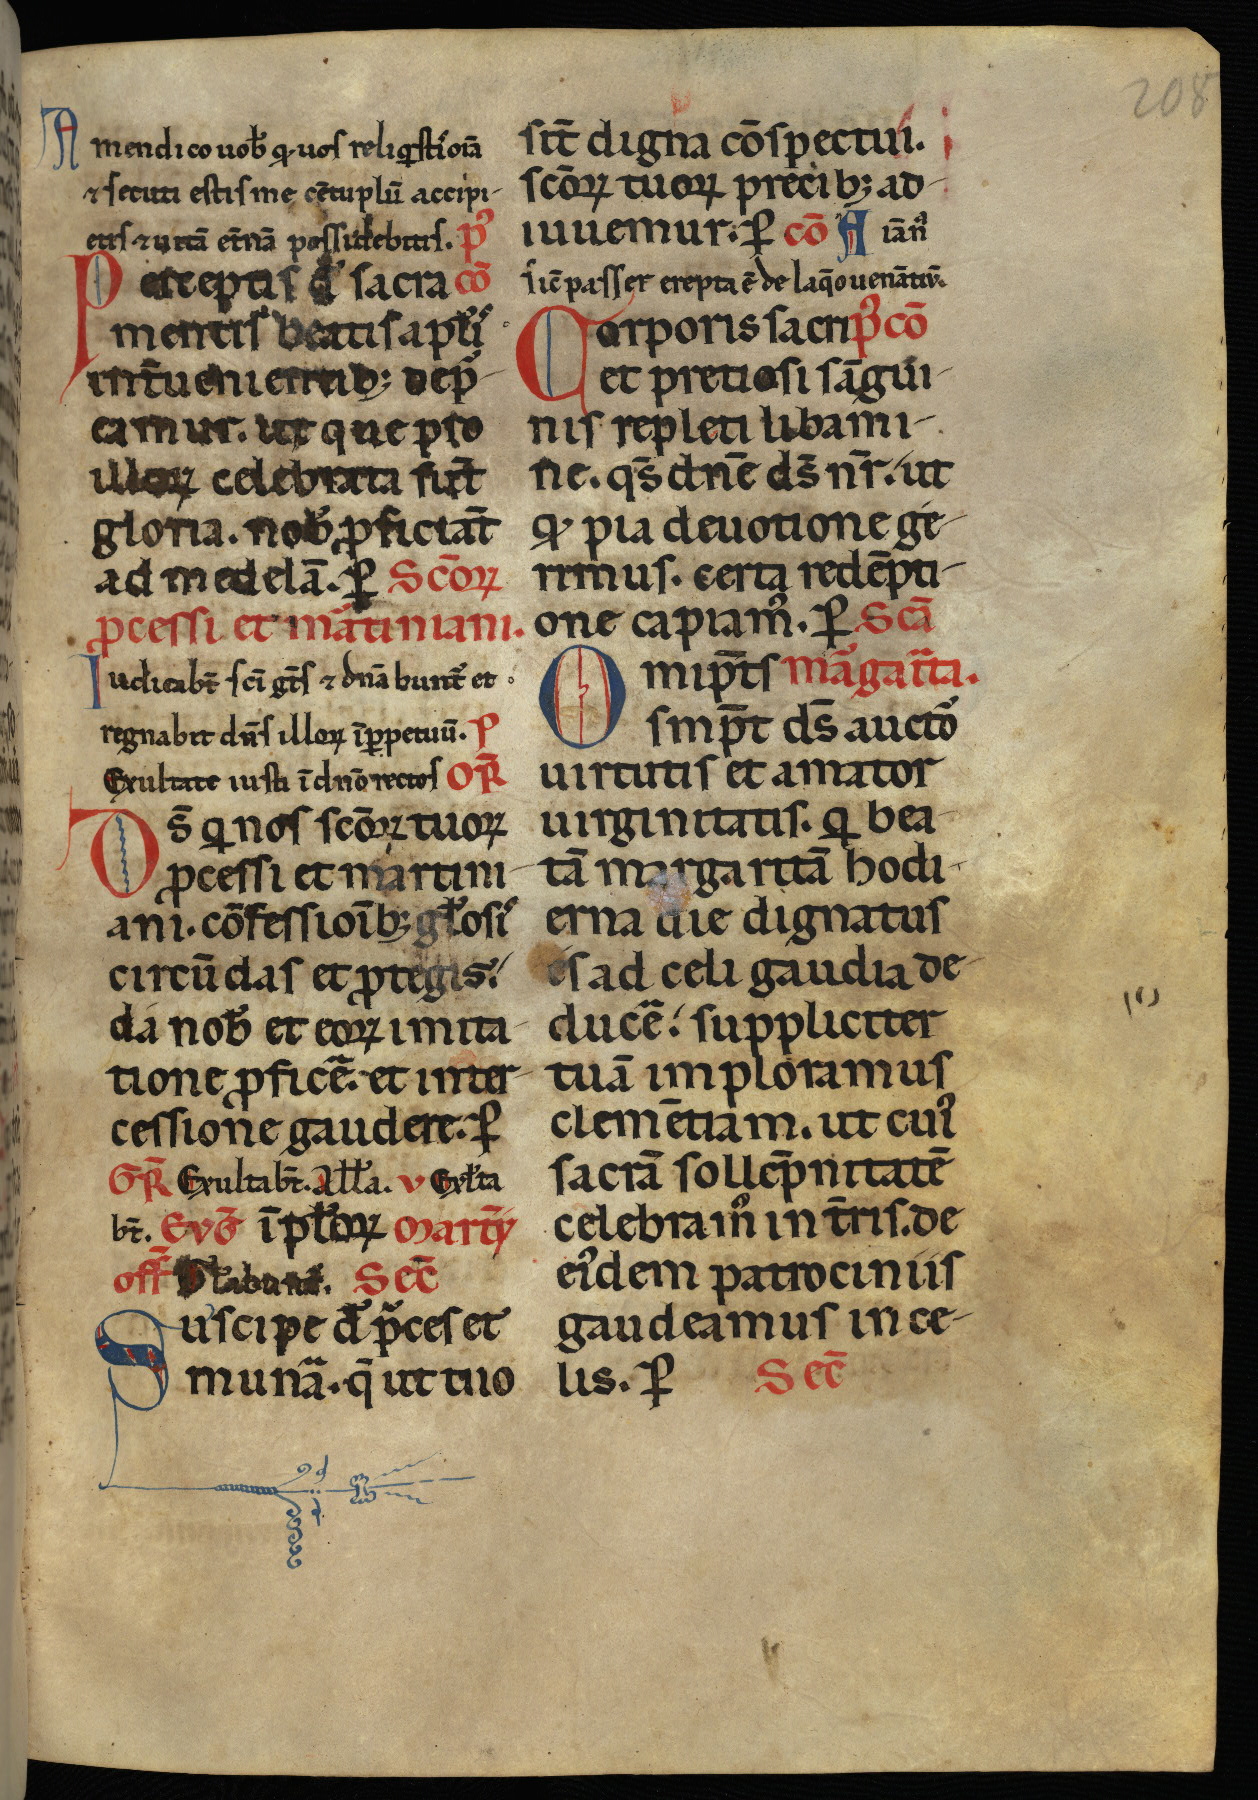 208
Amen dico uob̄ qͥ uos reliqͥstis oīa
⁊ secuti estis me cētuplū accipi-
etis ⁊ uitā et̄nā possidebitis. p̄
Perceptis dn̄e sacra cō
mentis beatis apl̄is
int̄uenientib; dep̄-
camur. ut que pro
illoꝝ celebrata sūt
gloria. nob̄ ꝓficiāt
ad medelā. ꝑ Scōꝝ
ꝓcessi et mārtiniani.
Iudicabt̄ sc̄i gt̄s ⁊ dn̄abunt̄ et
regnabit dn̄s illoꝝ ī ꝑpetuū. P
Exultate iusti ī dn̄o rectos OR̄
Ds̄ qͥ nos scōꝝ tuoꝝ
ꝓcessi et martini-
ani. cōfessioīb; gl̄osis
circūdas et ꝓtegis.
da nob̄ et eoꝝ imita-
tione ꝓficēre. et inter-
cessione gaudere. ꝑ
GR̄ Exultabt̄. All̄a. v Exl̄ta
bt̄. Evḡ ī pl̄oꝝ Martȳ
off̄ Gl̄abunt̄. Sec̄
Suscipe dn̄e p̄ces et
munā. q̄ ut tuo
sīt digna cōspectui.
scōꝝ tuoꝝ precib; ad-
iuuemur. ꝑ cō Aīan̄
sic̄ passer erepta ē de laq̄o uenātiū.
Corporis sacri p̄ cō
et pretiosi sāgui-
nis repleti libami-
ne. qs̄ dn̄e ds̄ nr̄. ut
qd̄ pia deuotione ge-
rimus. certa redēpti-
one capiam᷒. ꝑ Scā
Omip̄ts mārgar̄ta.
smp̄t ds̄ auctor
uirtutis et amator
uirginitatis. qͥ bea-
tā margaritā hodi-
erna die dignatus
es ad celi gaudia de-
ducēre. suppliciter
tuā imploramus
clemētiam. ut cui᷒
sacrā sollēpnitatē
celebram᷒ in t̄ris. de
ei᷒dem patrociniis
gaudeamus in ce-
lis. ꝑ Sec̄